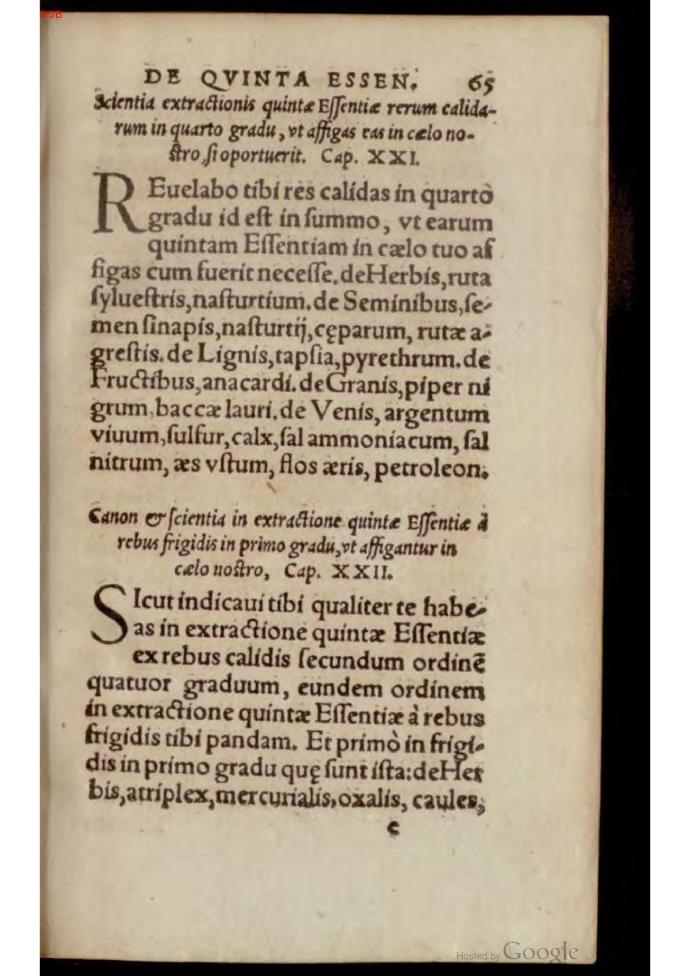 DE QVINTA ESSEN. 65
Scientia extractionis quintæ Eſſentiæ rerum calida-
rum in quarto gradu, vt affigas eas in cælo no-
ſtro, ſi oportuerit. Cap. XXI.
REuelabo tibi res calidas in quarto
gradu id eſt in ſummo, vt earum
quintam Eſſentiam in cælo tuo af
figas cum fuerit neceſſe. de Herbis, ruta
ſylueſtris, naſturtium. de Seminibus, ſe-
men ſinapis, naſturtij, cęparum, rutæ a-
greſtis. de Lignis, tapſia, pyrethrum. de
Fructibus, anacardi. de Granis, piper ni
grum, baccæ lauri. de Venis, argentum
viuum, ſulfur, calx, ſal ammoniacum, ſal
nitrum, æs vſtum, flos æris, petroleon.
Canon & ſcientia in extractione quintæ Eſſentiæ à
rebus frigidis in primo gradu, vt affigantur in
cælo noſtro, Cap. XXII.
SIcut indicaui tibi qualiter te habe-
as in extractione quintæ Eſſentiæ
ex rebus calidis ſecundum ordinẽ
quatuor graduum, eundem ordinem
in extractione quintæ Eſſentiæ à rebus
frigidis tibi pandam. Et primò in frigi-
dis in primo gradu quę ſunt iſta: de Her
bis, atriplex, mercurialis, oxalis, caules,
e
Hosted by Google